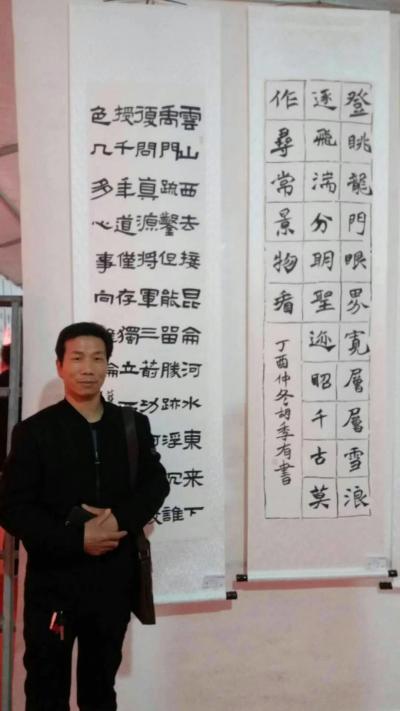 登眺龍門眼界寬層層雪浪
逐飛湍分明聖迹昭千古莫
作尋常景物看
丁酉仲冬胡季有書
雲山西去接昆侖河水東來下
禹門疏鑿但能留勝跡浮沉誰
復問真源將軍三箭功
授千年道僅存獨立
色几多心事向誰論